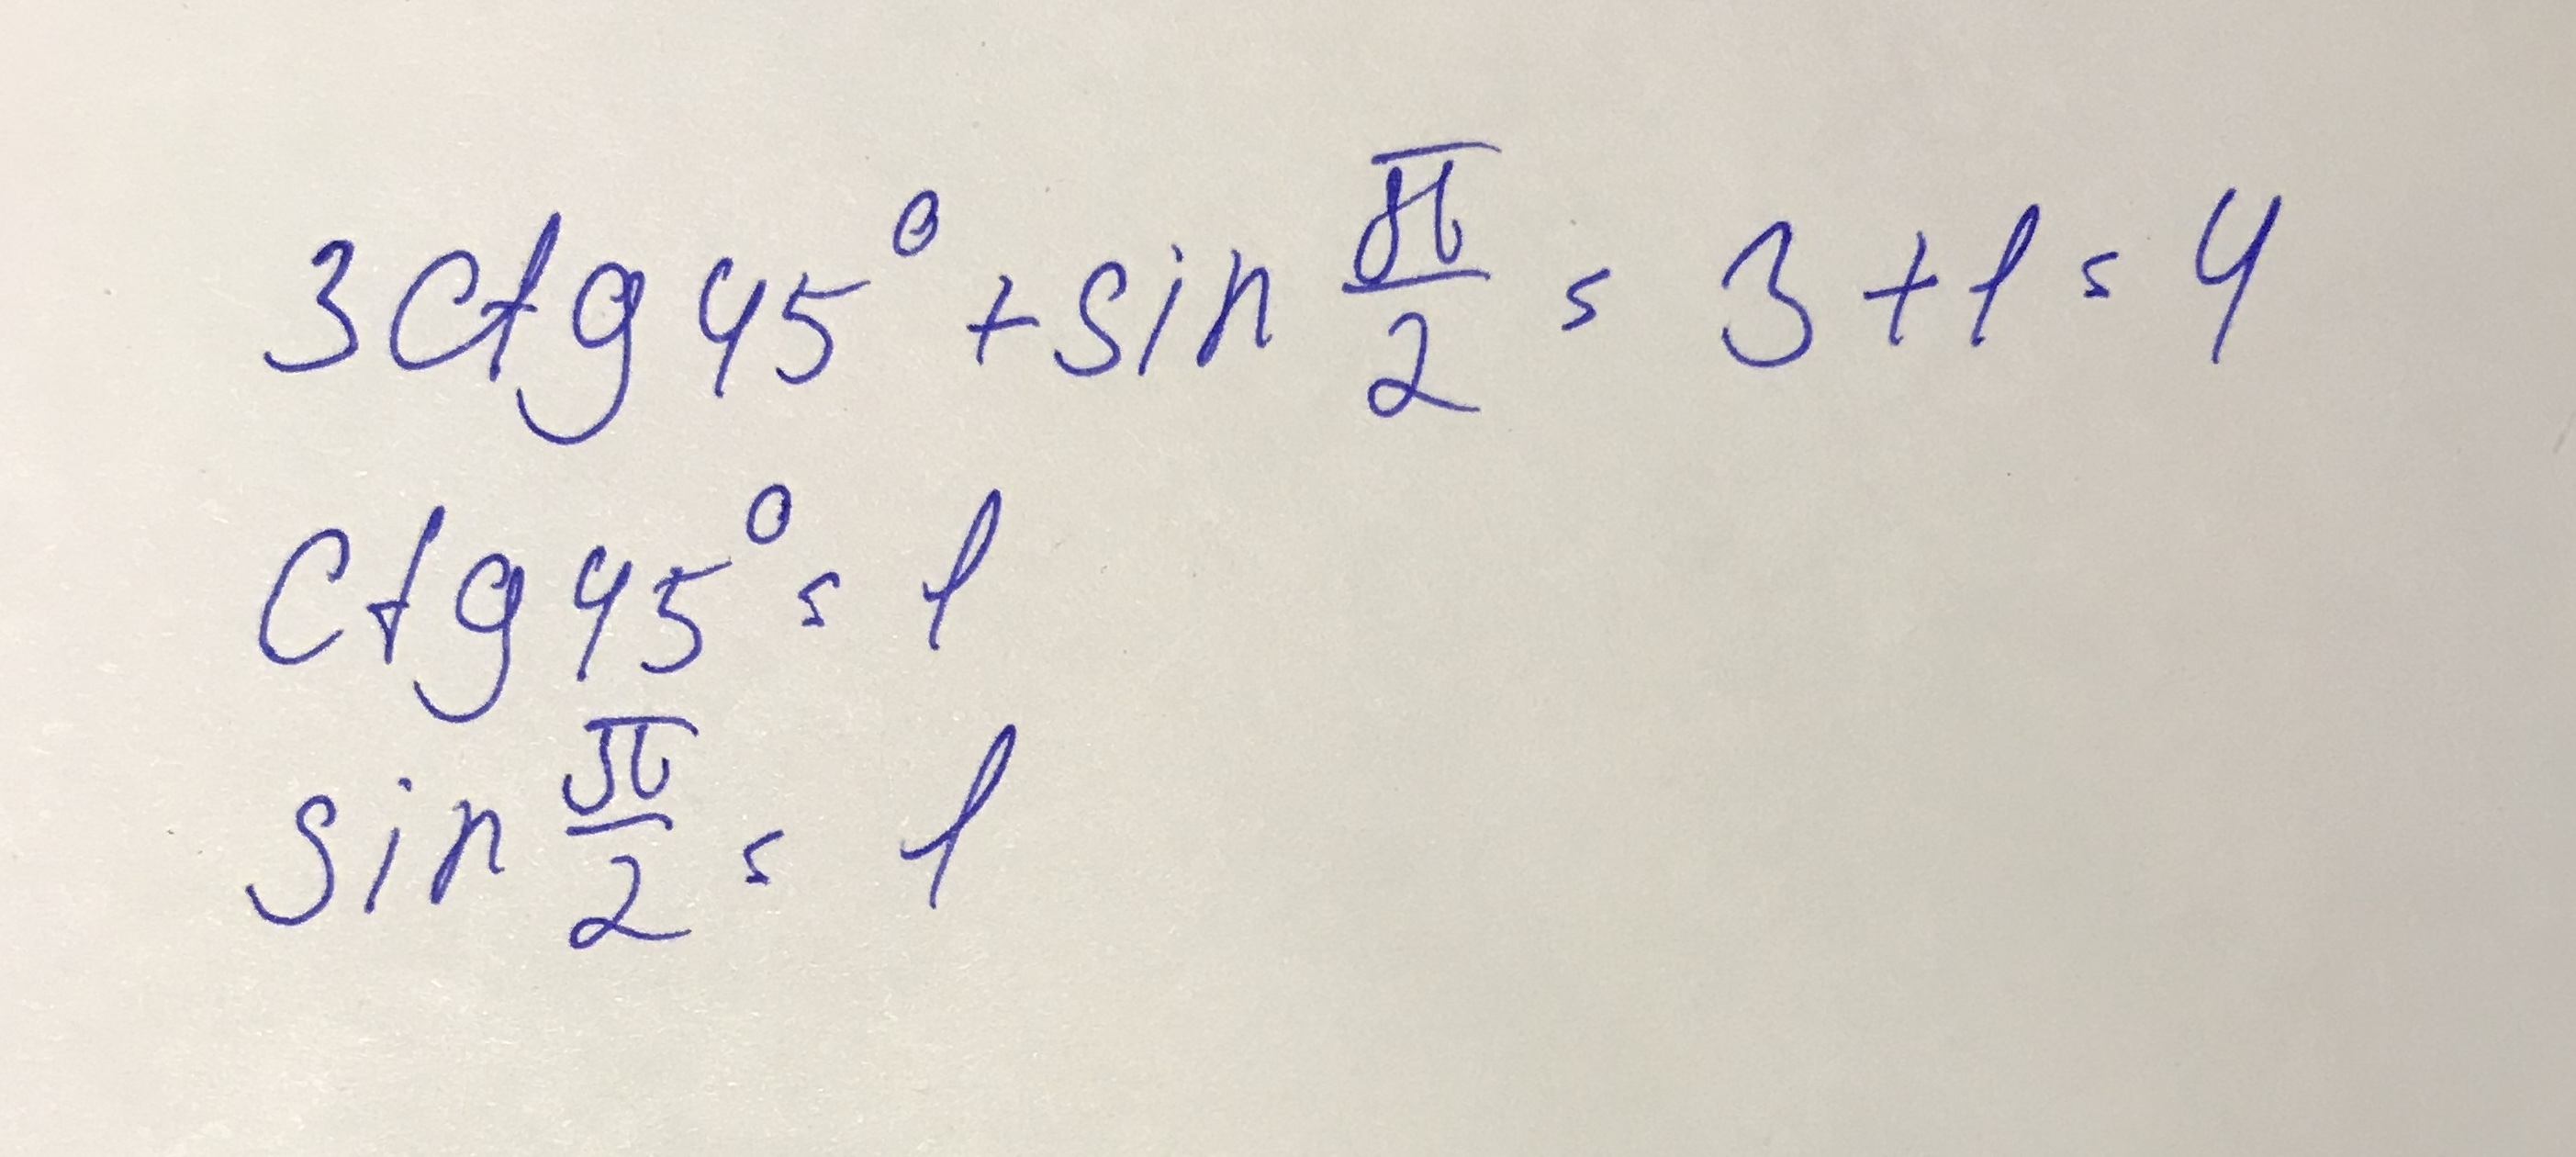 3ctg45° + sin π/2 = 3 + 1 = 4
ctg45° = 1
sin π/2 = 1